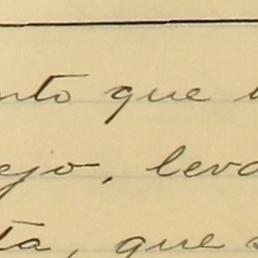 nto que
ejo, leva
ta, que